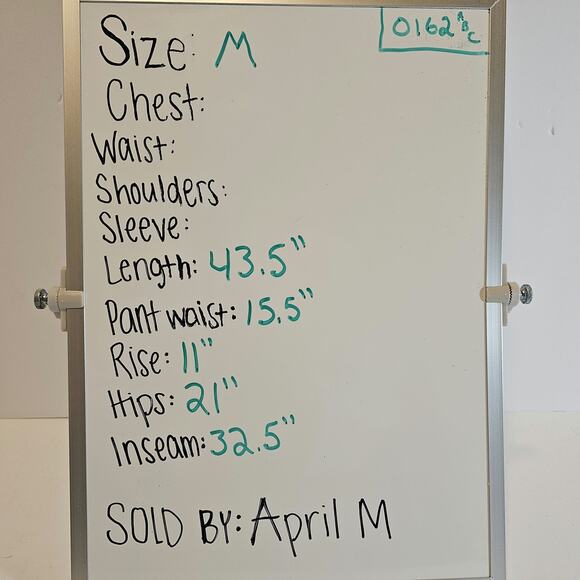 Size: M
0162 A B C
Chest:
Waist:
Shoulders:
Sleeve:
Length: 43.5"
Pant waist: 15.5"
Rise: 11"
Hips: 21"
Inseam: 32.5"
SOLD BY: April M